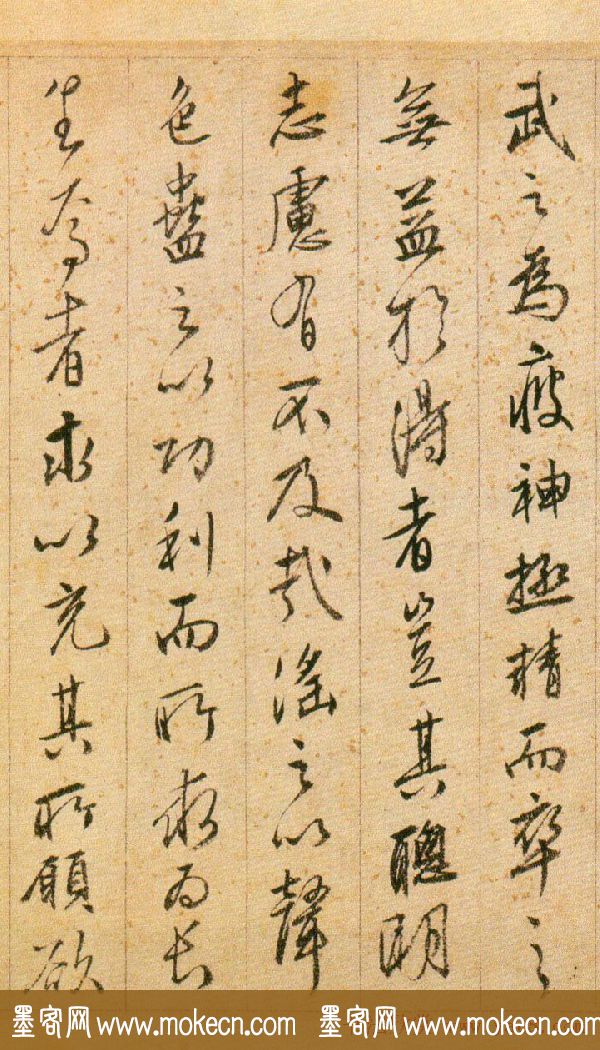 武之為疲神極精而卒之
無益於得者豈其聰明
志慮有不及哉淫之以聲
色蠱之以功利而所為長
生夸者求以充其所願欲
墨客网 www.mokecn.com 墨客网 www.mokecn.com